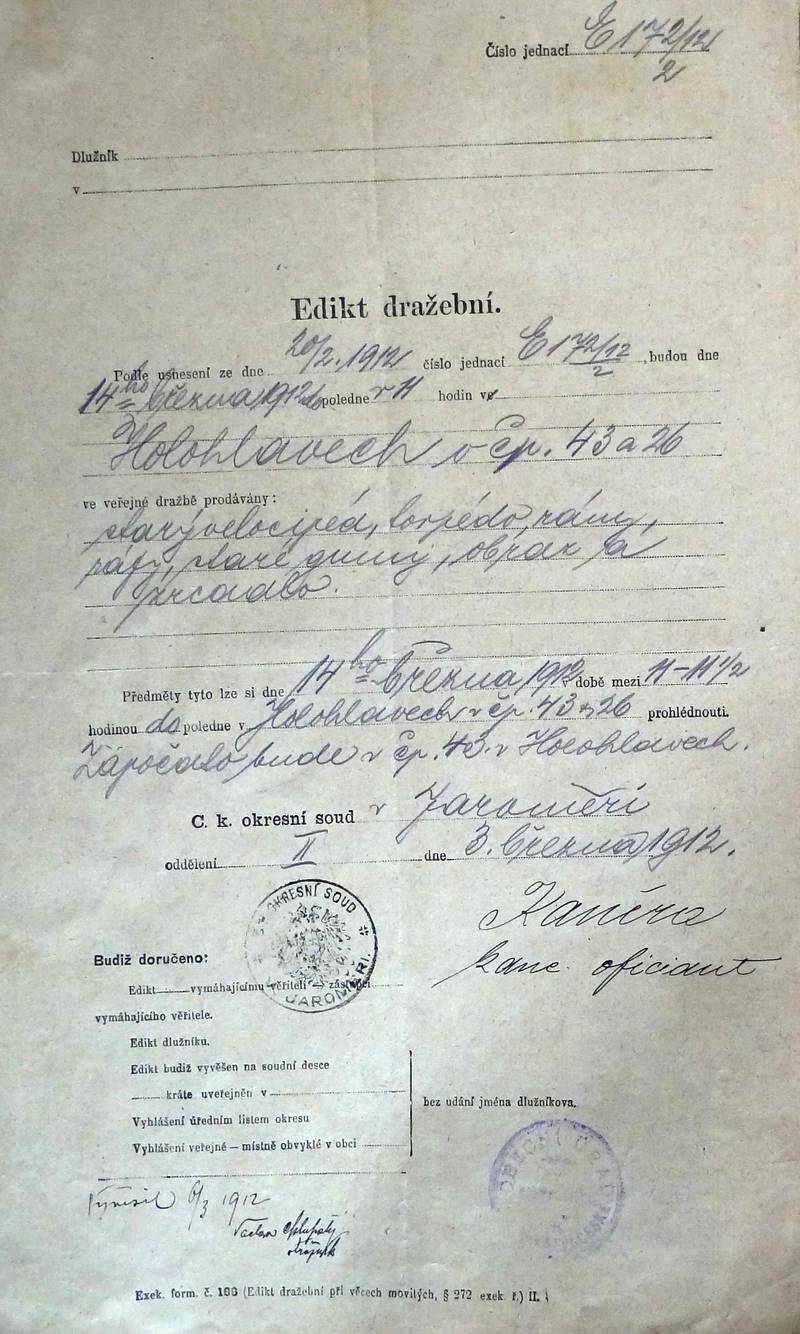 Číslo jednací E 172/12
2
Dlužník
v
Edikt dražební.
Podle usnesení ze dne 20/2. 1912 číslo jednací E 172/12/2, budou dne
14ho března 1912 do poledne v 11 hodin ve
Holohlavech v čp. 43 a 26
ve veřejné dražbě prodávány:
starý velociped, torpédo, rámy,
ráfy, staré gumy, obraz a
zrcadlo.
Předměty tyto lze si dne 14ho března 1912 v době mezi 11-11 1/2
hodinou do poledne v Holohlavech v čp. 43 a 26 prohlédnouti.
Započato bude v čp. 43. v Holohlavech.
C. k. okresní soud v Jaroměři
oddělení II dne 3. března 1912.
kanc. oficiant
OKRESNÍ SOUD
JAROMĚŘI.
Budiž doručeno:
Edikt vymáhajícímu věřiteli — zástupci
vymáhajícího věřitele.
Edikt dlužníku.
Edikt budiž vyvěšen na soudní desce
kráte uveřejněn v
Vyhlášení úředním listem okresu
Vyhlášení veřejné — místně obvyklé v obci
bez udání jména dlužníkova.
OBECNÍ ÚŘAD
Vyvěsil 6/3 1912
Václav
Exek. form. č. 186 (Edikt dražební při věcech movitých, § 272 exek. ř.) II.